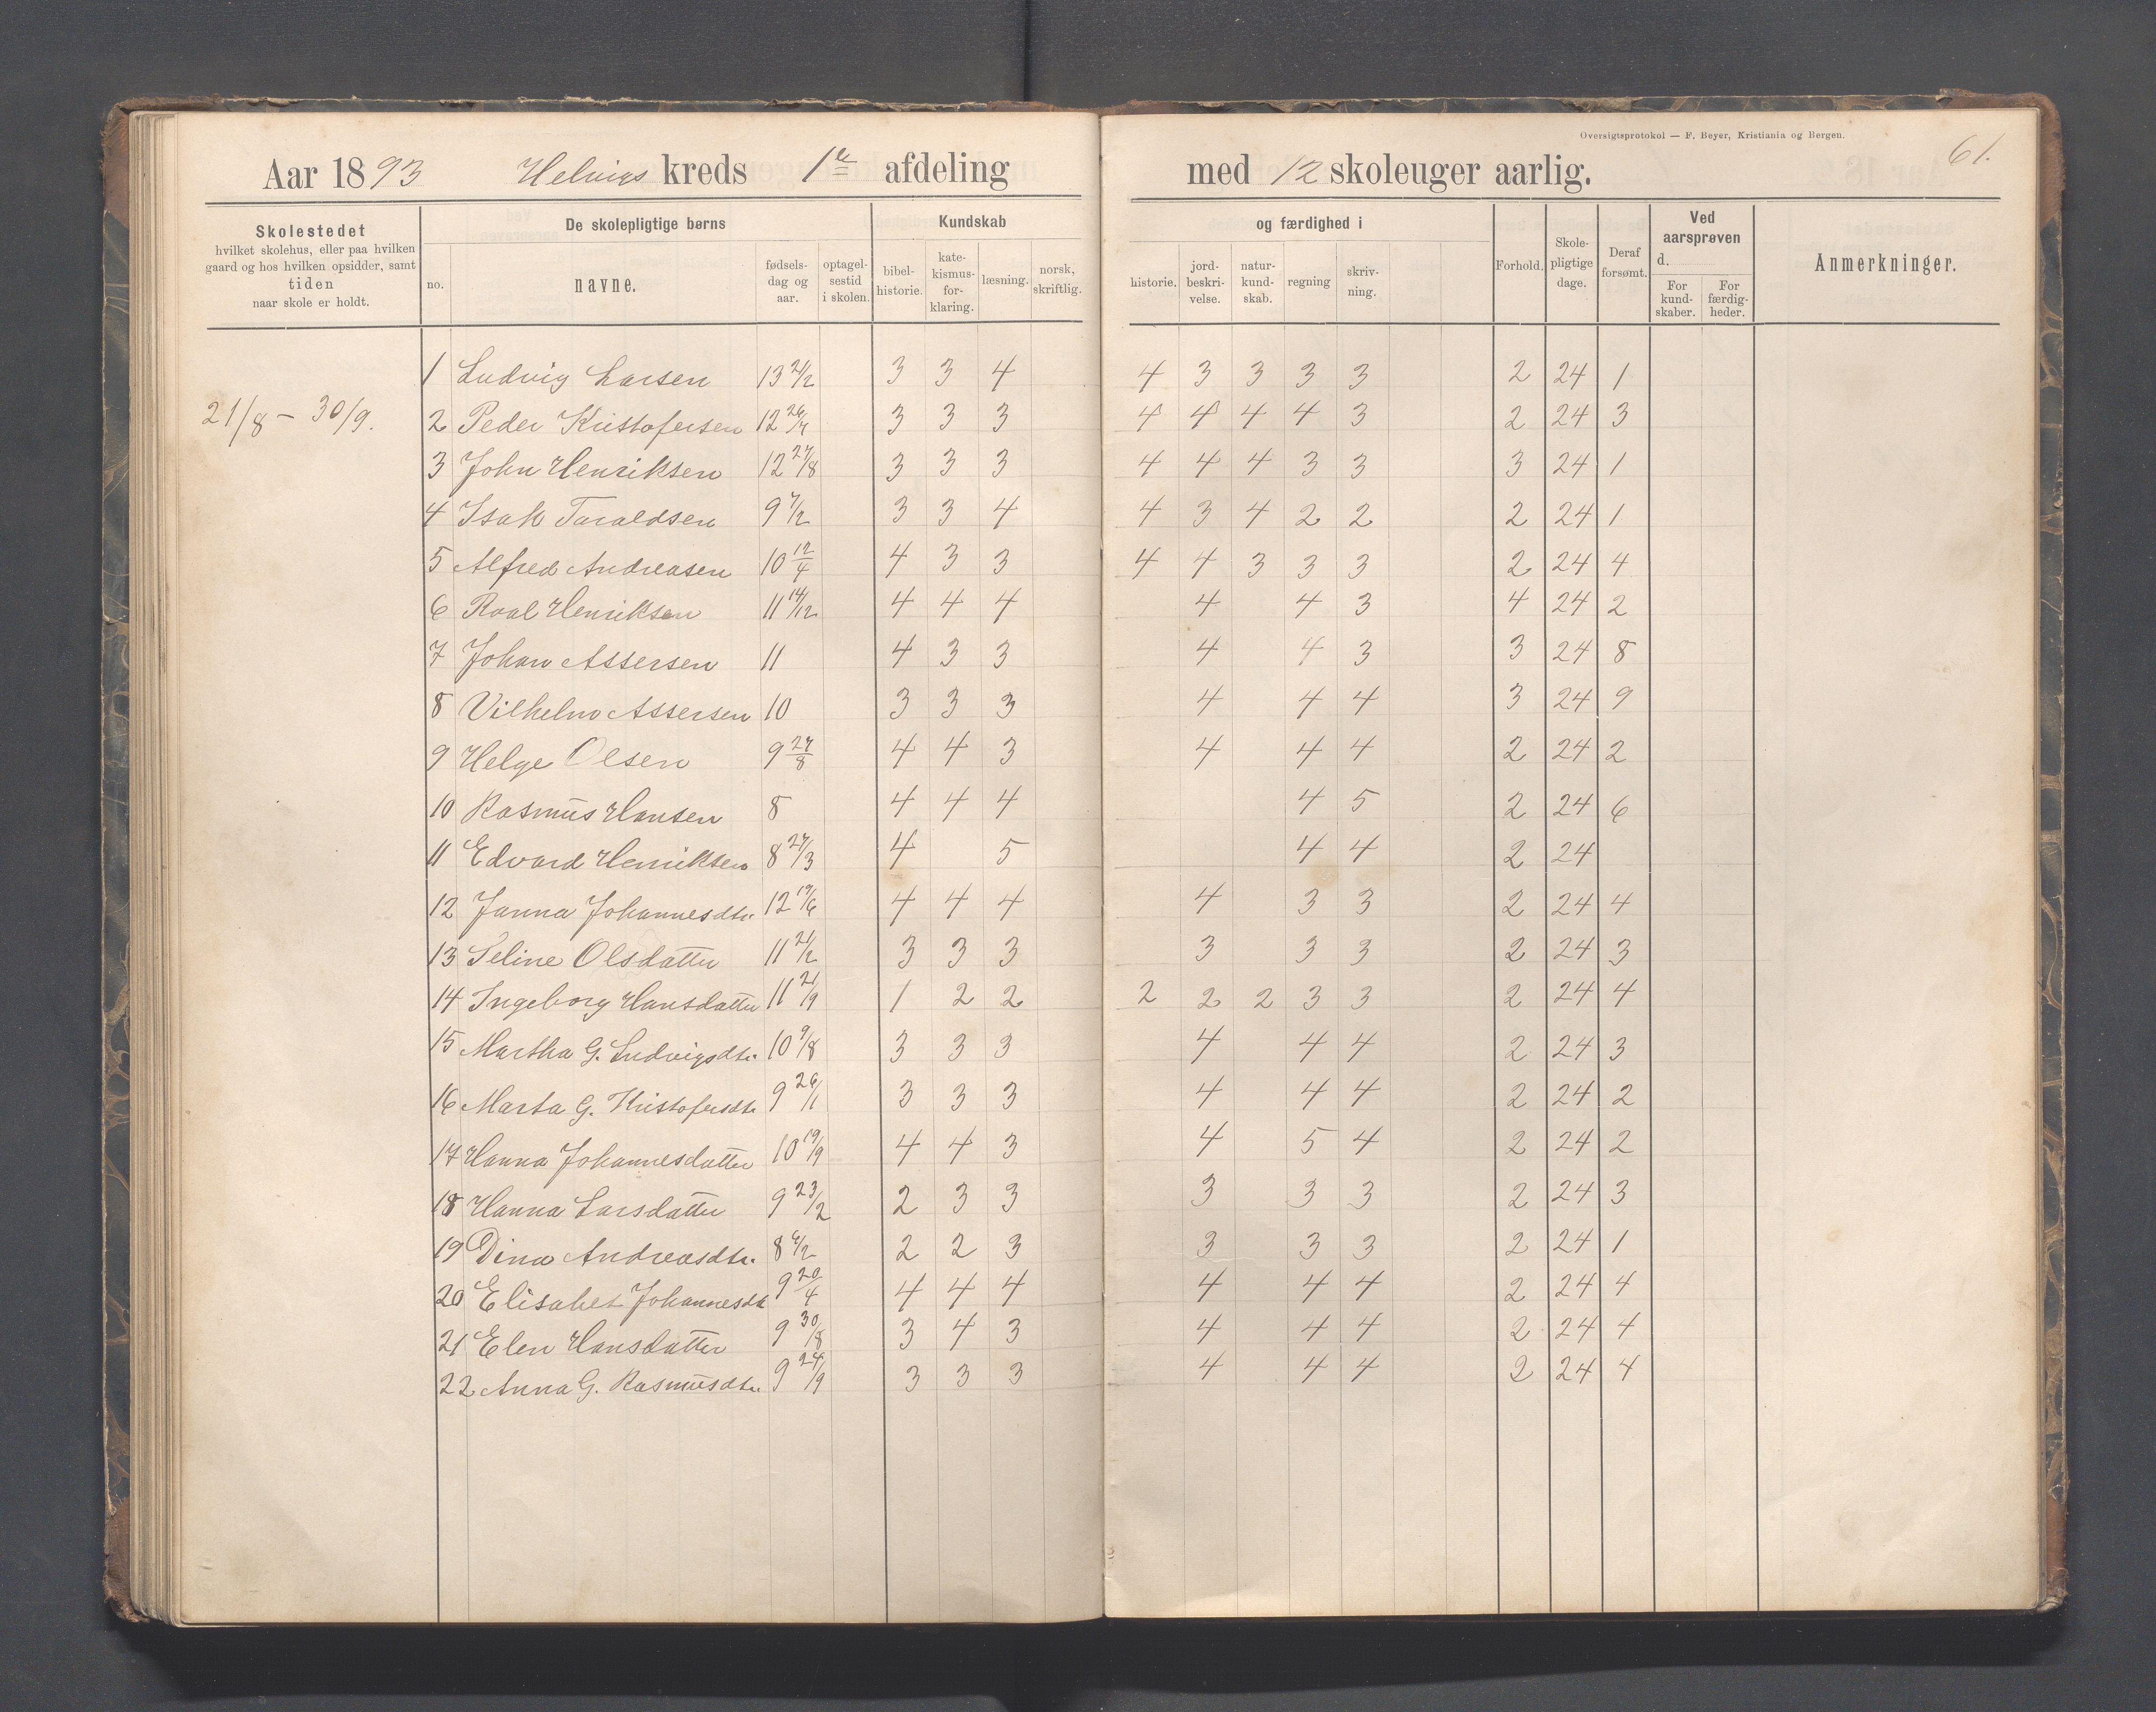 Oversigtsprotokol — F. Beyer, Kristiania og Bergen.
61.
Aar 1893 Helvigs kreds 1ste afdeling med 12 skoleuger aarlig.
Skolestedet hvilket skolehus, eller paa hvilken gaard og hos hvilken opsidder, samt tiden naar skole er holdt.
De skolepligtige børns
Kundskab og færdighed i
no. navne. fødsels-dag og aar. optagel-sestid i skolen. bibel-historie. kate-kismus-for-klaring. læsning. norsk, skriftlig. historie. jord-beskri-velse. natur-kund-skab. regning skriv-ning. Forhold. Skole-pligtige dage. Deraf forsømt.
Ved aarsprøven d.
For kund-skaber. For færdig-heder.
Anmerkninger.
21/8 – 30/9.
1 Ludvig Larsen 13 3 3 4 4 3 3 3 3 2 24 1
2 Peder Kristofersen 12 3 3 3 4 4 4 4 3 2 24 3
3 John Henriksen 12 27/8 3 3 3 4 4 4 3 3 3 24 1
4 Isak Taraldsen 9 7/2 3 3 4 4 3 4 2 2 2 24 1
5 Alfred Andreasen 10 12/4 4 3 3 4 4 3 3 3 2 24 4
6 Roal Henriksen 11 14/12 4 4 4 4 4 3 4 24 2
7 Johan Assersen 11 4 3 3 4 4 3 3 24 8
8 Vilhelm Assersen 10 3 3 3 4 4 4 3 24 9
9 Helge Olsen 9 27/8 4 4 3 4 4 4 2 24 2
10 Rasmus Hansen 8 4 4 4 4 5 2 24 6
11 Edvard Henriksen 8 27/3 4 5 4 4 2 24
12 Janna Johannesdtr. 12 19/6 4 4 4 4 3 3 2 24 4
13 Seline Olsdatter 11 21/2 3 3 3 3 3 3 2 24 3
14 Ingeborg Hansdatter 11 21/9 1 2 2 2 2 2 3 3 2 24 4
15 Martha G. Ludvigsdtr. 10 9/8 3 3 3 4 4 4 2 24 3
16 Marta G. Kristofersdtr 9 26/1 3 3 3 4 4 4 2 24 2
17 Hanna Johannesdatter 10 19/9 4 4 3 4 5 4 2 24 2
18 Hanna Larsdatter 9 23/2 2 3 3 3 3 3 2 24 3
19 Dina Andreasdtr. 8 6/2 2 2 3 3 3 3 2 24 1
20 Elisabet Johannesdtr 9 20/4 4 4 4 4 4 4 2 24 4
21 Elen Hansdatter 9 30/8 3 4 3 4 4 4 2 24 4
22 Anna G. Rasmusdtr. 9 24/9 3 3 3 4 4 4 2 24 4